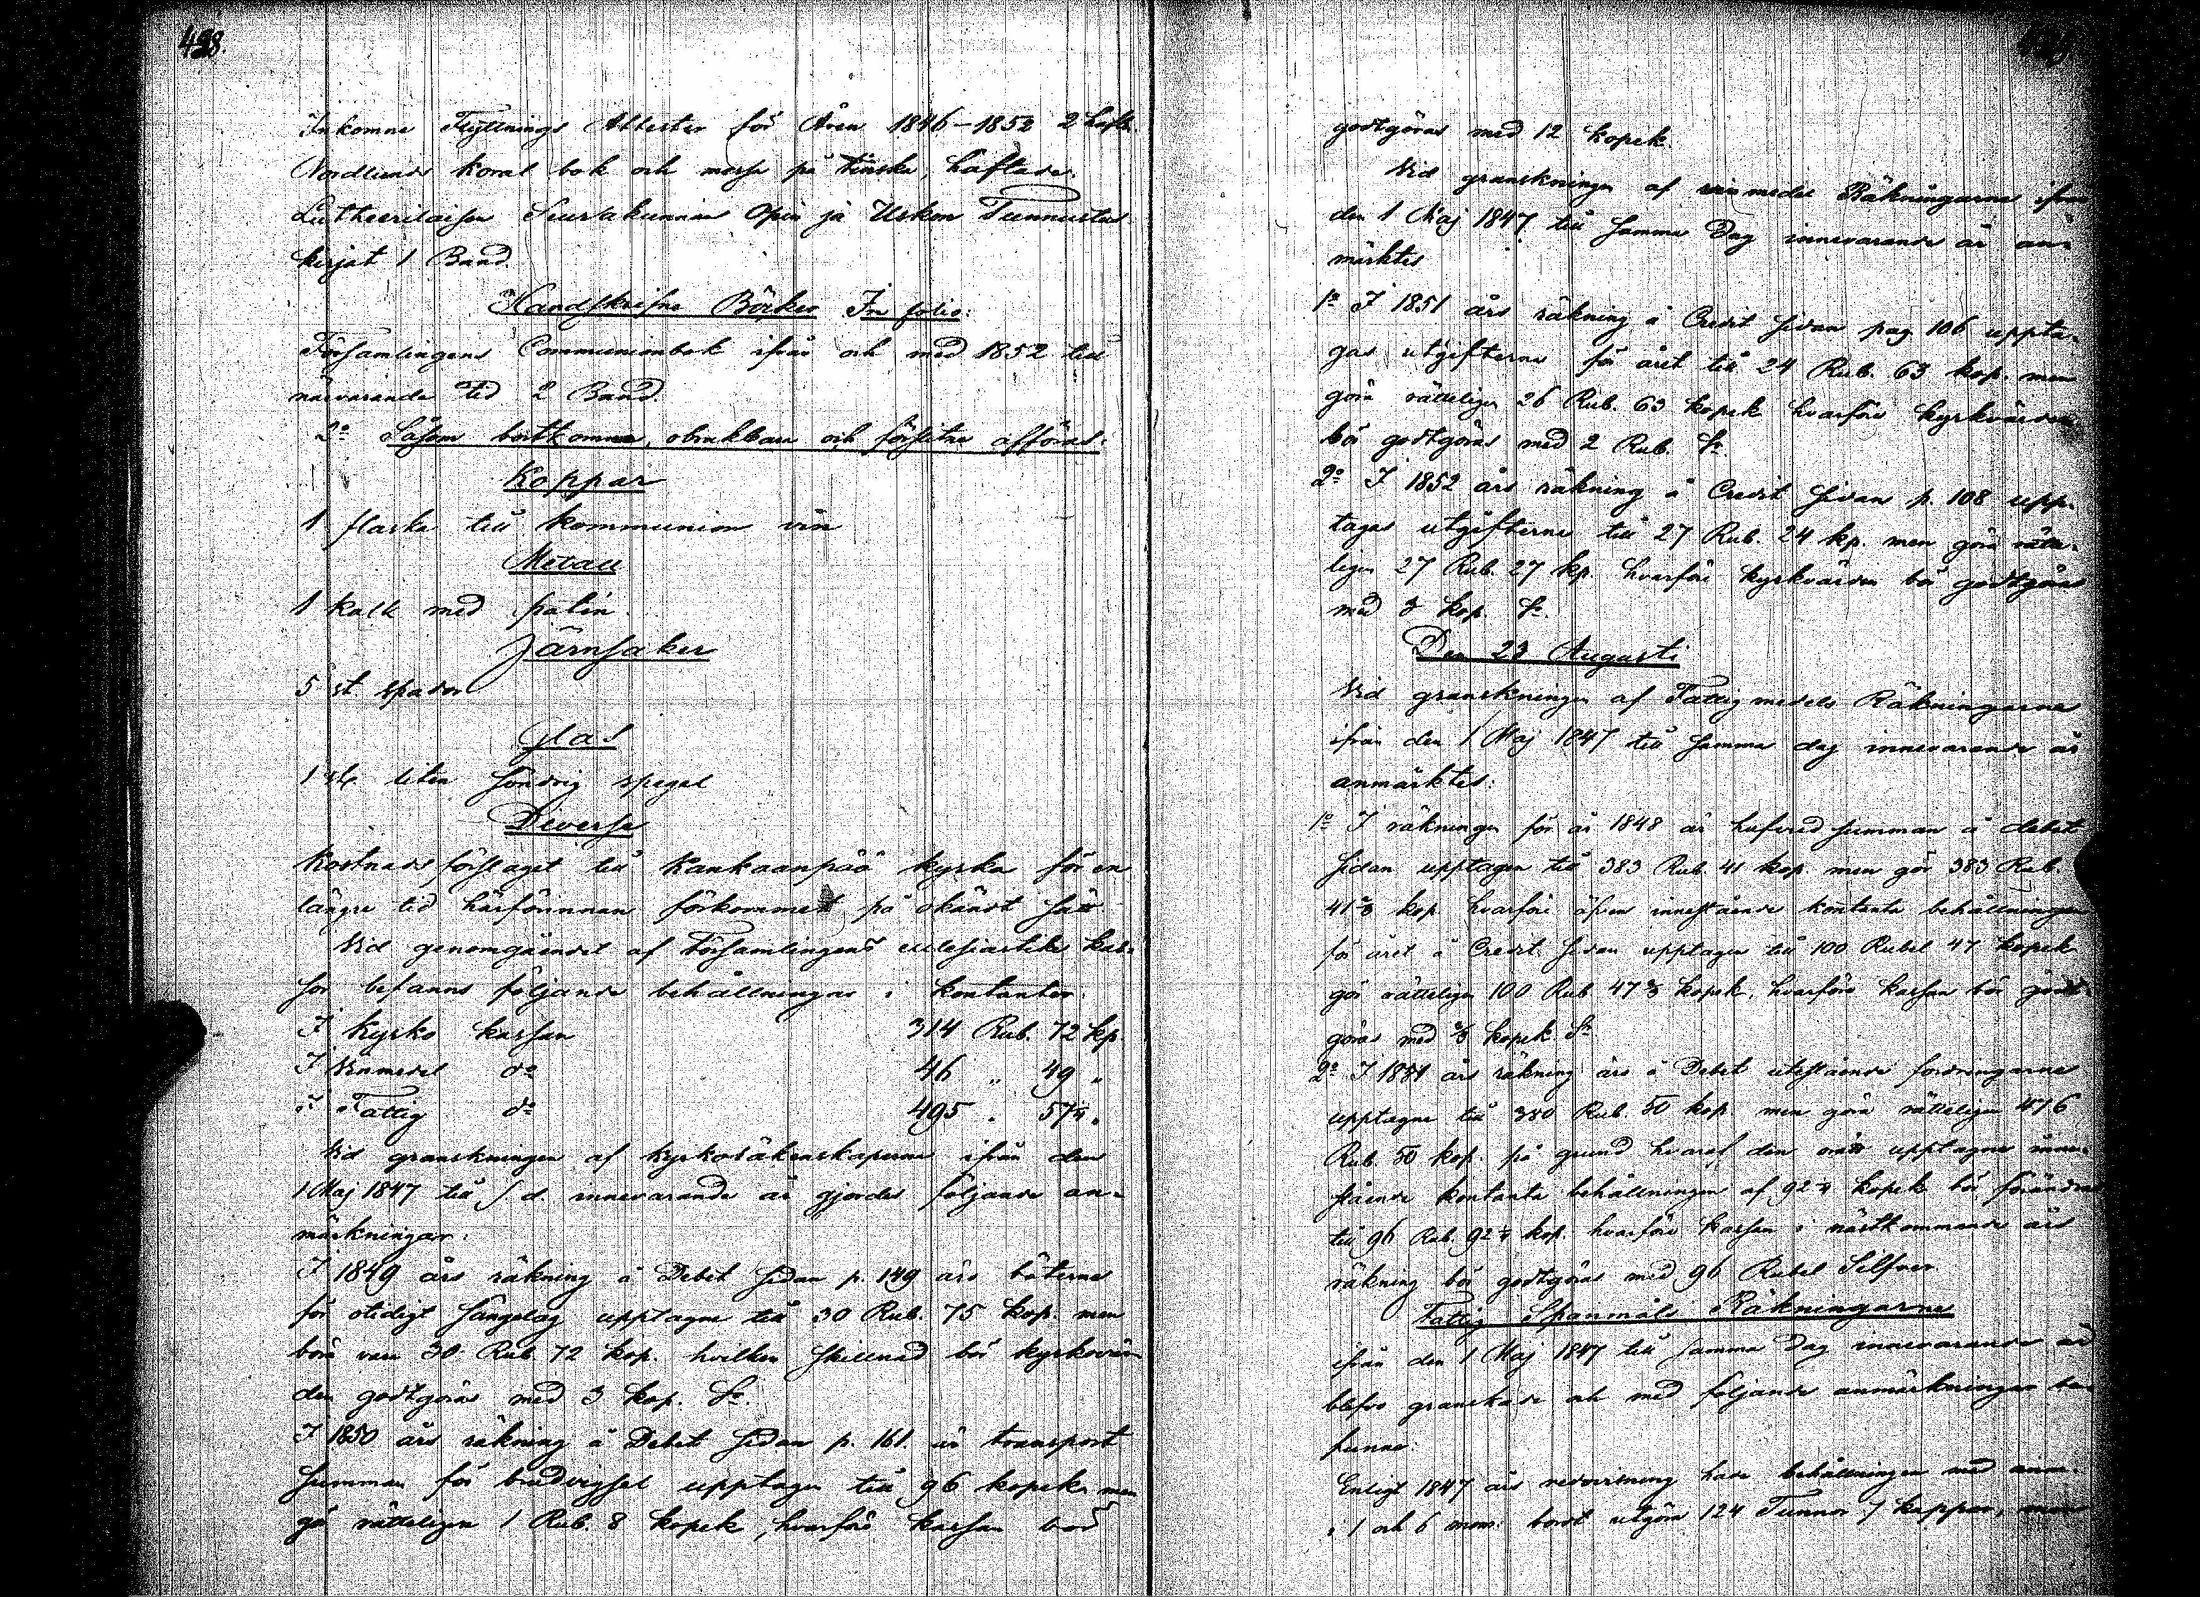 428.
Inkomne Flyttnings Attester för Åren 1846-1852 2 häft.
Nordlunds koral bok och messa på finska, häftade.
Lutherilaisen Seurakunnan Opin ja Uskon Tunnustus
kirjat 1 Band.
Handskrifne Böcker In folio:
Församlingens Communionbok ifrån och med 1852 till
närvarande tid 2 Band
2o Såsom bortkomna, obrukbara och förslitna afföras:
Koppar
1 flaska till kommunion vin
Metall
1 kalk med patén.
Järnsaker
5 st spador
Glas
1 st liten söndrig spegel
Diverse
Kostnads förslaget till Kankaanpää kyrka för en
längre tid härförinnan förkommet på okändt sätt.
Vid genomgåendet af Församlingens ecclesiastika kas-
sor befanns följande behållningar i kontanter:
I Kyrko kassan 314 Rub. 72 kp.
I Vinmedel do 46 " 49 "
I Fattig do 495 " 57
Vid granskningen af kyrkoräkenskaperna ifrån den
1 Maj 1847 till s. d. innevarande år gjordes följande an-
märkningar:
I 1849 års räkning å Debet sidan p. 149 äro böterna
för otidigt sängelag upptagne till 30 Rub. 75 kop. men
böra vara 30 Rub. 72 kop. hvilken skillnad bör kyrkovär-
den godtgöras med 3 kop. Sr.
I 1850 års räkning å Debet sidan p. 161. är transport
summan för brudvigsel upptagen till 96 kopek men
gör rätteligen 1 Rub. 8 kopek, hvarföre kassan bör
godtgöras med 12 kopek.
Vid granskningen af vinmedel Räkningarna ifrån
den 1 Maj 1847 till samma Dag innevarande år an-
märktes
1o I 1851 års räkning å Credit sidan pag 106 uppta-
gas utgifterna för året till 24 Rub. 63 kop. men
göra rätteligen 26 Rub. 63 kopek hvarföre kyrkvärden
bör godtgöras med 2 Rub. Sr.
2o I 1852 års räkning å Credit sidan p. 108 upp-
tagas utgifterna till 27 Rub. 24 kp. men göra rätte-
ligen 27 Rub. 27 kp. hvarföre kyrkvärden bör godtgöras
med 3 kop. Sr.
Den 23 Augusti
Vid granskningen af Fattigmedels Räkningarna
ifrån den 1 Maj 1847 till samma dag innevarande år
anmärktes:
1o I räkningen för år 1848 är hufvudsumman å debet
sidan upptagen till 383 Rub. 41 kop. men gör 383 Rub.
41 kop hvarföre äfven innestående kontanta behållningen
för året å Credit sidan upptagen till 100 Rubel 47 kopek
gör rätteligen 100 Rub 47 kopek, hvarföre kassan bör godt-
göras med kopek Sr
2o I 1851 års räkning äro å Debet utestående fordringarna
upptagne till 380 Rub. 50 kop men göra rätteligen 476
Rub. 50 kop. på grund hvaraf den orätt upptagna inne-
stående kontanta behållningen af 92 kopek bör förändras
till 96 Rub. 92 kop. hvarföre kassan i nästkommande års
räkning bör godtgöras med 96 Rubel Silfver.
Fattig Spanmåls Räkningarne
ifrån den 1 Maj 1847 till samma Dag innevarande år
blefvo granskade och med följande anmärkningar be-
funne:
Enligt 1847 års redovisning hade behållningen med anm.
i 1 och 6 mom: bordt utgöra 124 Tunnor 7 kappar, men